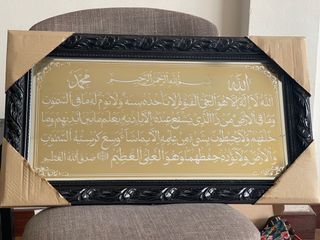 الله بسم الله الرحمن الرحيم محمد
الله لا إله إلا هو الحي القيوم لا تأخذه سنة ولا نوم له ما في السموت
وما في الأرض من ذا الذي يشفع عنده إلا بإذنه يعلم ما بين أيديهم وما
خلفهم ولا يحيطون بشئ من علمه إلا بما شاء وسع كرسيه السموت
والأرض ولا يؤده حفظهما وهو العلي العظيم صدق الله العظيم